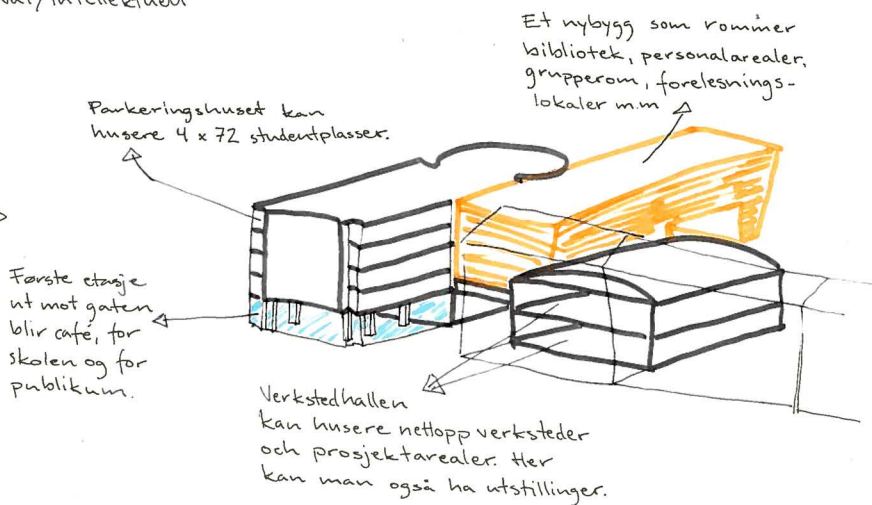 Et nybygg som rommer
bibliotek, personalarealer,
grupperom, forelesnings-
lokaler m.m
Parkeringshuset kan
husere 4 x 72 studentplasser.
Første etasje
ut mot gaten
blir café, for
skolen og for
publikum.
Verkstedhallen
kan husere nettopp verksteder
och prosjektarealer. Her
kan man også ha utstillinger.